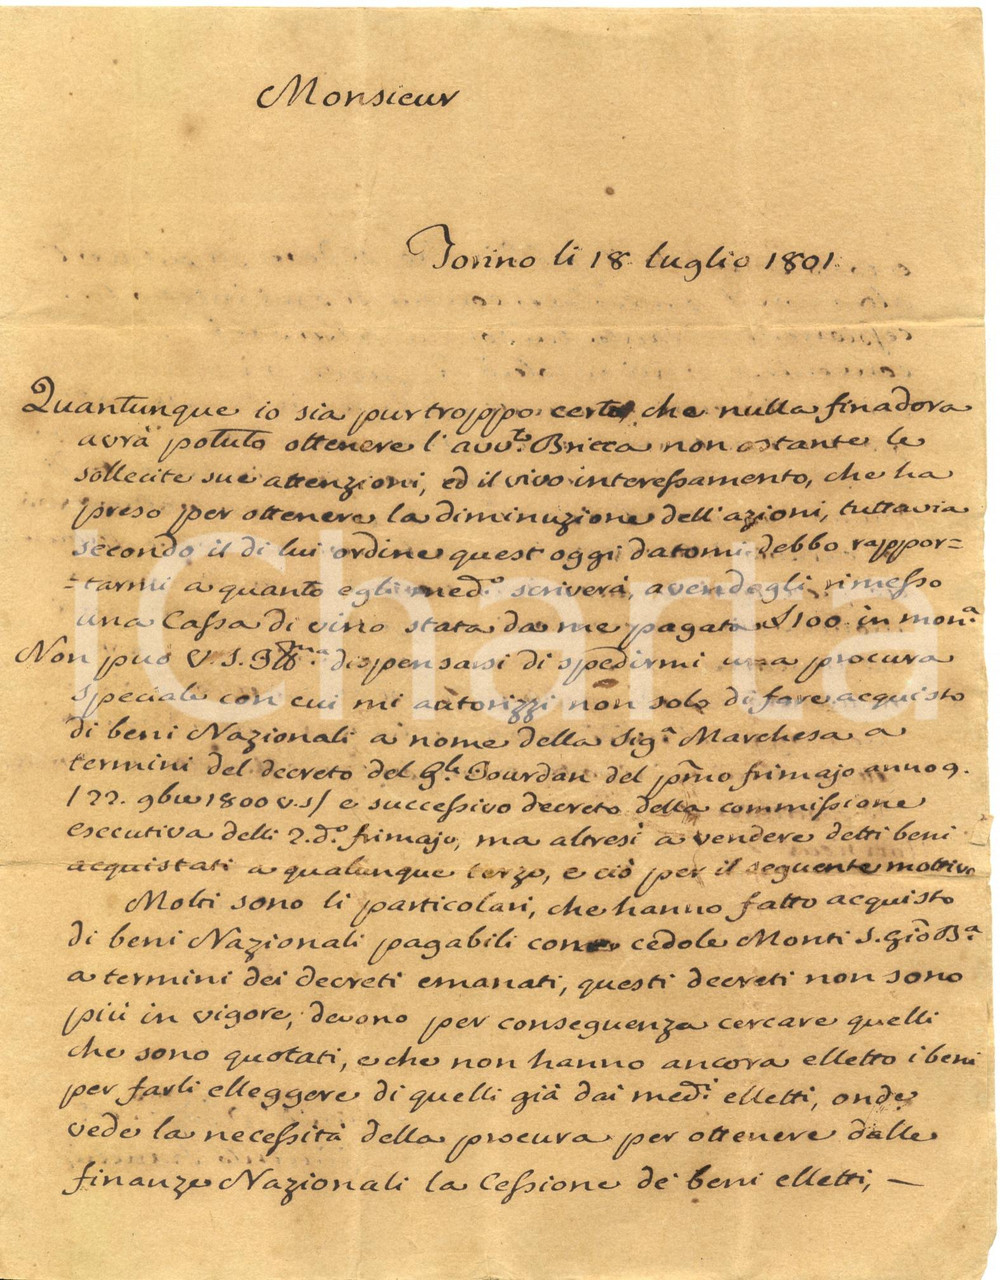 Monsieur
Torino li 18 luglio 1801.
Quantunque io sia purtroppo certo, che nulla finadora
avrà potuto ottenere l'avv.to Bricca non ostante le
sollecite sue attenzioni, ed il vivo interessamento, che ha
preso per ottenere la diminuzione dell'azioni, tuttavia
secondo il di lui ordine quest'oggi datomi debbo rappor=
=tarmi a quanto egli med.o scriverà, avendogli rimesso
una Cassa di vino stata da me pagata £100 in mon.a
Non può V. S. Ill.ma dispensarsi di spedirmi una procura
speciale con cui mi autorizzi non solo di fare acquisto
di beni Nazionali a nome della Sig.a Marchesa a
termini del decreto del G.l Jourdan del p.mo frimajo anno 9.
/22. 9bre 1800 v.s/ e successivo decreto della commissione
esecutiva delli 2. d.o frimajo, ma altresì a vendere detti beni
acquistati a qualunque terzo, e ciò per il seguente mottivo
Molti sono li particolari, che hanno fatto acquisto
di beni Nazionali pagabili con cedole Monti S. Gio B.a
a termini dei decreti emanati, questi decreti non sono
più in vigore, devono per conseguenza cercare quelli
che sono quotati, e che non hanno ancora elletto i beni
per farli elleggere di quelli già dai med.i elletti, onde
vede la necessità della procura per ottenere dalle
finanze Nazionali la Cessione de' beni elletti, —
iCharta